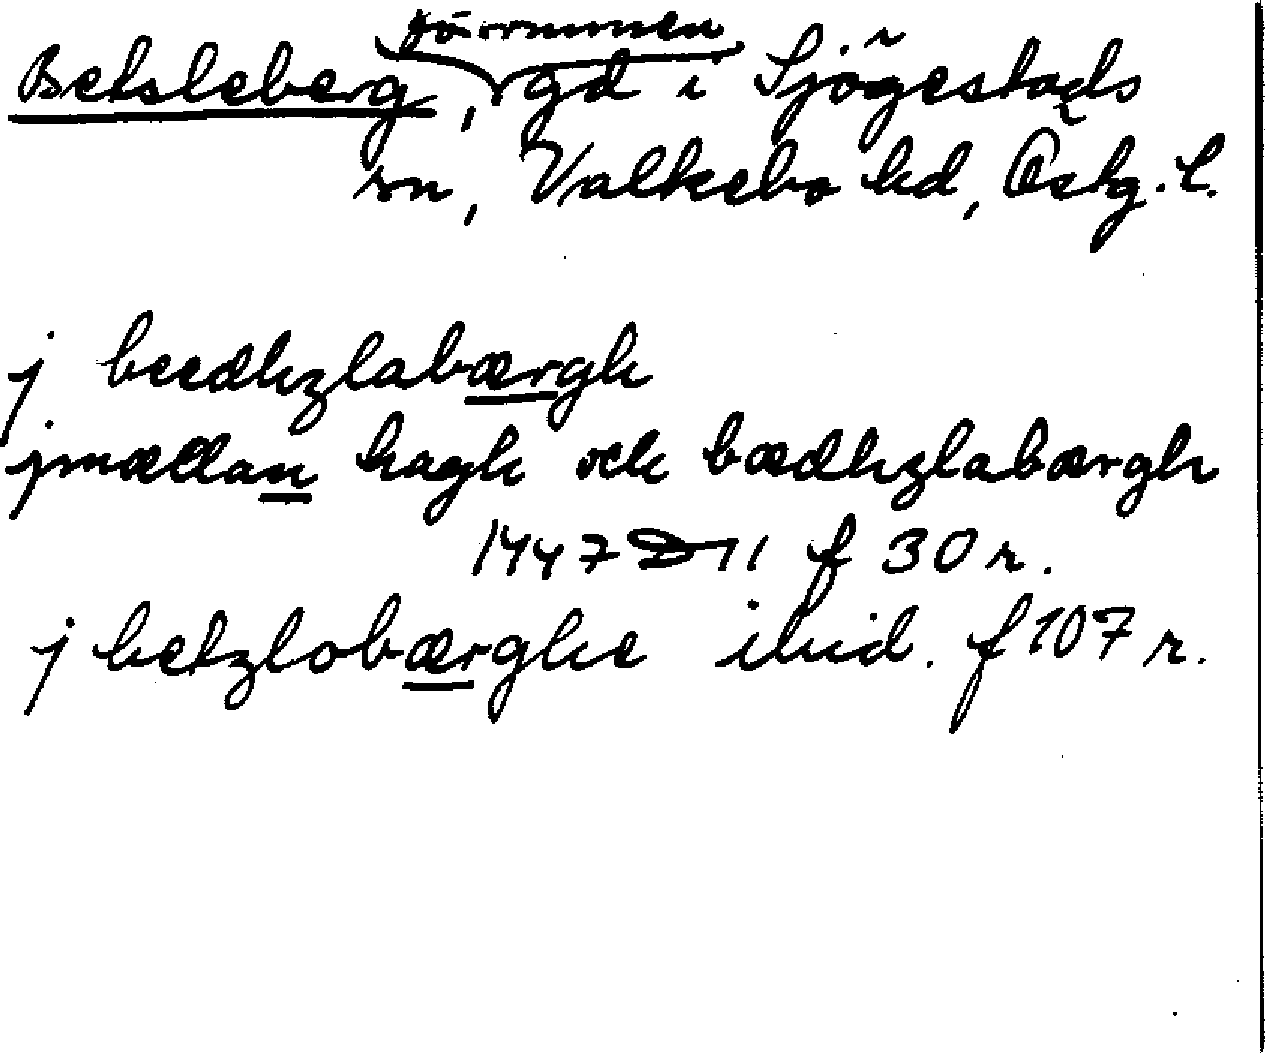 försvunnen
Betsleberg, gd i Sjögestads
sn, Valkebo hd, Östg. l.
j beedhzlabærgh
jmællan hagh och bædhzlabærgh
1447 D 11 f 30 r.
j betzlobærghe ibid. f 107 r.